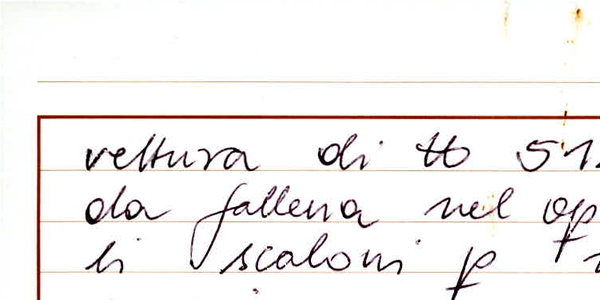 vettura di tt 51
da gallena nel op
li scaloni p